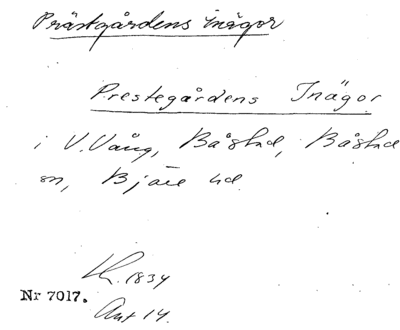 Prästgårdens inägor
Prestegårdens Inägor.
i V. Vång, Båstad, Båstad
sn, Bjäre hd
Lk. 1834
Nr 7017.
Akt 14.